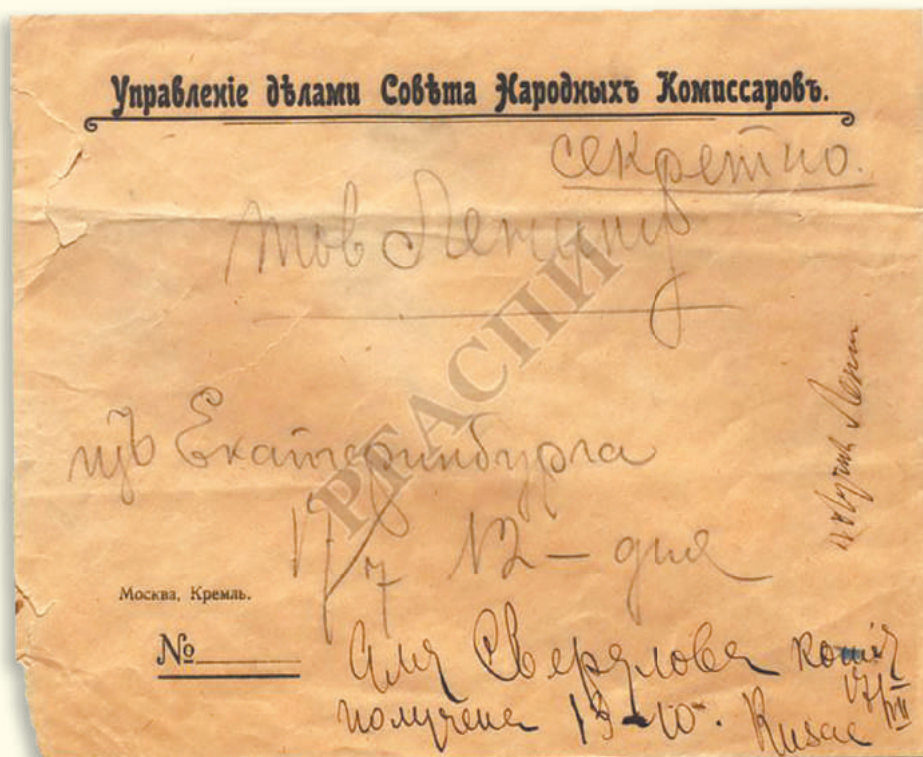 Управленіе дѣлами Совѣта Народныхъ Комиссаровъ.
Секретно.
тов Ленину
РГАСПИ
изъ Екатеринбурга
17/7 12 – дня
получил Ленин
Москва, Кремль.
№
Для Свердлова копія
получена 13-10. 17/VII